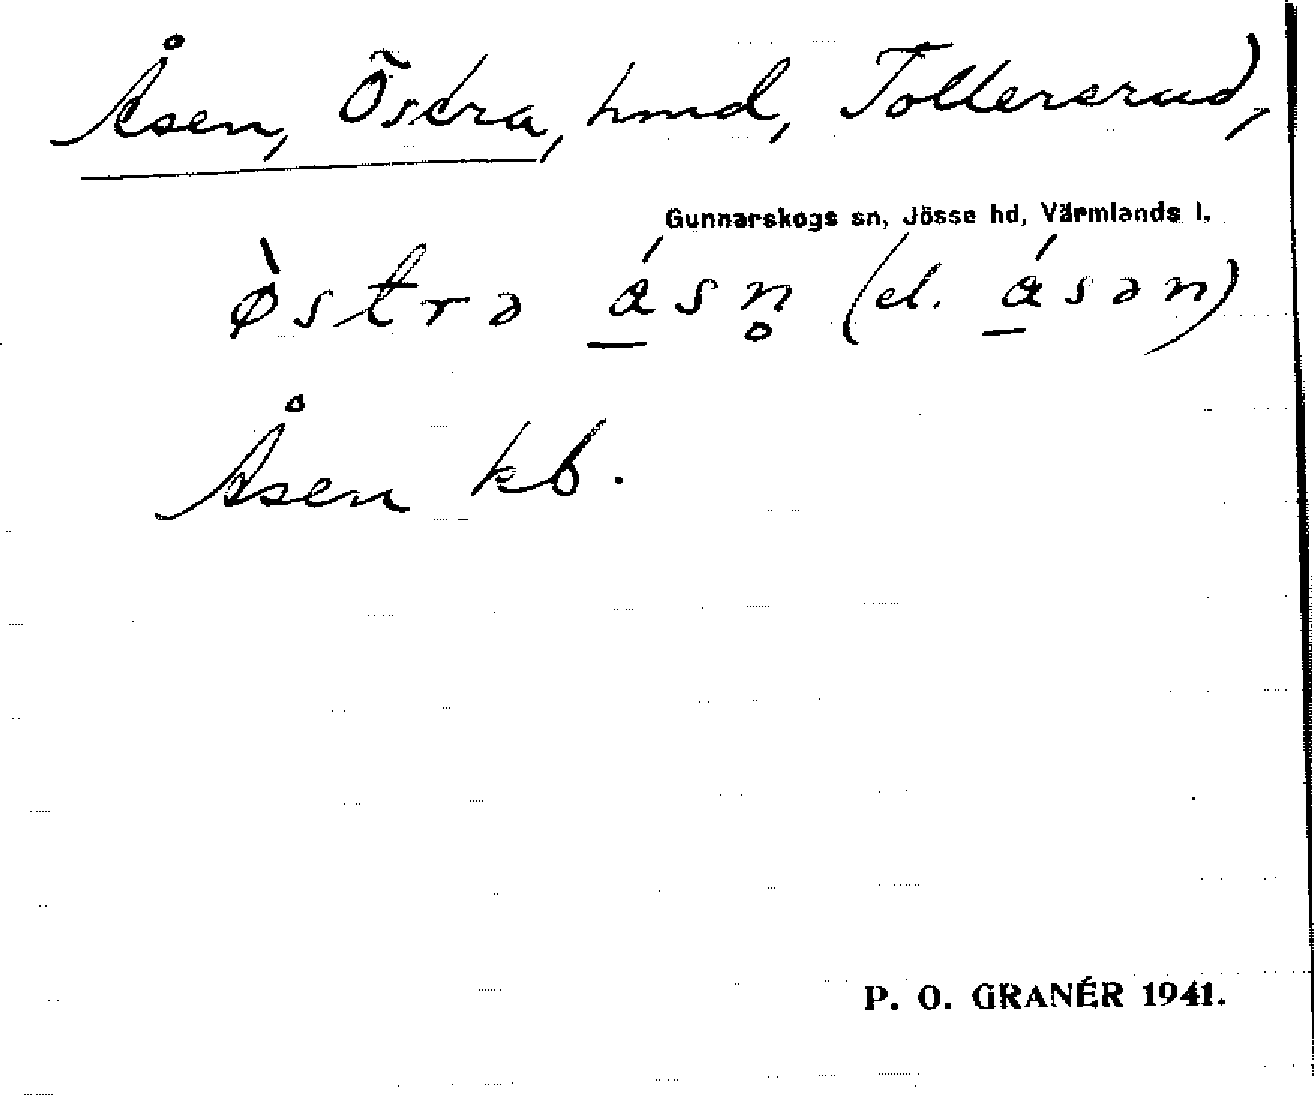 Åsen, Östra, hmd, Tollersrud,
Gunnarskogs sn, Jösse hd, Värmlands l.
ø̀strə á̱sn̥ (el. á̱sən)
Åsen kb.
P. O. GRANÉR 1941.